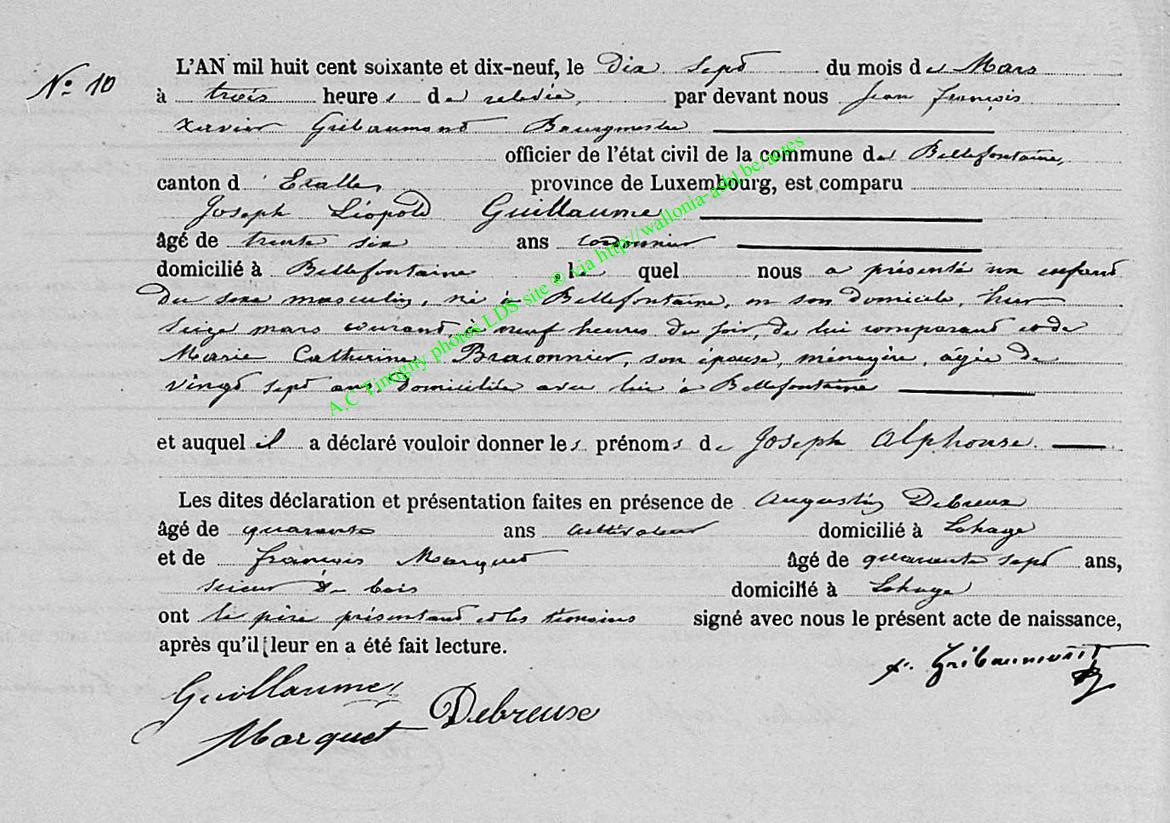 N° 10
L'AN mil huit cent soixante et dix-neuf, le dix sept du mois de Mars
à trois heures de relevée, par devant nous Jean François
Xavier Gribaumont Bourgmestre
officier de l'état civil de la commune de Bellefontaine,
canton d'Etalle, province de Luxembourg, est comparu
Joseph Léopold Guillaume
âgé de trente six ans cordonnier
domicilié à Bellefontaine le quel nous a présenté un enfant
du sexe masculin, né à Bellefontaine, en son domicile, hier
seize mars courant, à neuf heures du soir, de lui comparant et de
Marie Catherine Braconnier, son épouse, ménagère, âgée de
vingt sept ans, domiciliée avec lui à Bellefontaine
et auquel il a déclaré vouloir donner les prénoms de Joseph Alphonse.
Les dites déclaration et présentation faites en présence de Augustin Debreux
âgé de quarante ans cultivateur domicilié à Lahage
et de François Marquet âgé de quarante sept ans,
scieur de bois domicilié à Lahage
ont le père présentant et les témoins signé avec nous le présent acte de naissance,
après qu'il leur en a été fait lecture.
Guillaume
Marquet Debreuse
x. Gribaumont
A.C Tintigny photos LDS site © via http://wallonia-asbl.be/actes